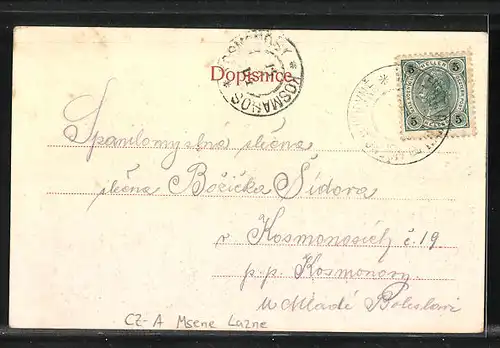 KOSMONOSY * KOSMANOS *
Dopisnice
5 HELLER 5
5 5
Spanilomyslná slečna
slečna Bočička Šidora
v Kosmonosích č. 19
p. p. Kosmonosy
u Mladé Boleslavi
CZ-A Msene Lazne